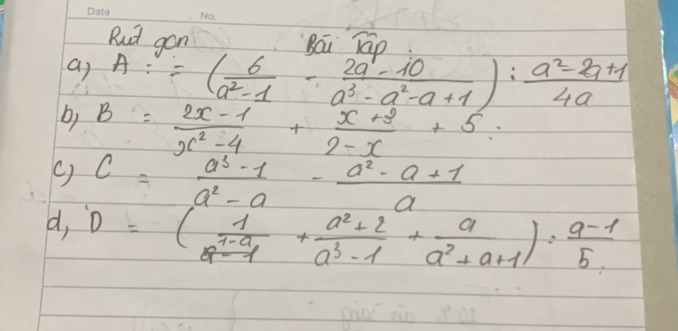 Date No.
Rút gọn Bài Tập:
a, A : = (6/(a² - 1) - (2a - 10)/(a³ - a² - a + 1)) : (a² - 2a + 1)/4a
b, B = (2x - 1)/(x² - 4) + (x + 3)/(2 - x) + 5 :
c, C = (a³ - 1)/(a² - a) - (a² - a + 1)/a
d, D = (1/(1 - a) + (a² + 2)/(a³ - 1) + a/(a² + a + 1)) : (a - 1)/5.